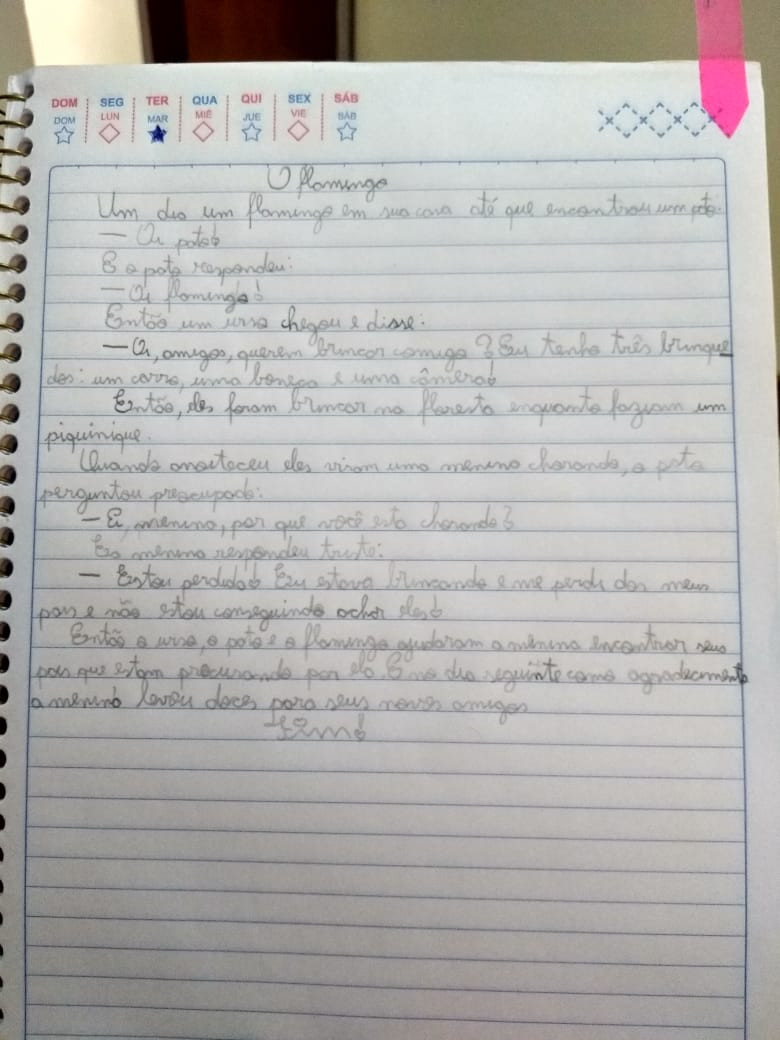 DOM SEG TER QUA QUI SEX SÁB
DOM LUN MAR MIÉ JUE VIE SÁB
O flamingo
Um dia um flamingo em sua casa até que encontrou um pato.
— Oi pato!
E o pato respondeu:
— Oi flamingo!
Então um urso chegou e disse:
— Oi, amigos, querem brincar comigo? Eu tenho três brinque
dos: um carro, uma boneca e uma câmera!
Então, eles foram brincar na floresta enquanto faziam um
piquinique.
Quando anoiteceu eles viram uma menina chorando, o pato
perguntou preocupado:
— Ei, menina, por que você esta chorando?
E a menina respondeu triste:
— Estou perdida! Eu estava brincando e me perdi dos meus
pais e não estou conseguindo achar eles!
Então o urso, o pato e o flamingo ajudaram a menina encontrar seus
pais que estam procurando por ela. E no dia seguinte como agradecimento
a menina levou doces para seus novos amigos
Fim!